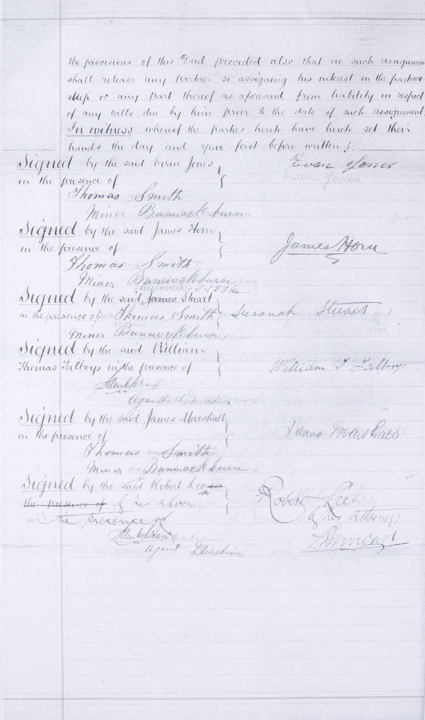 the provisions of this Deed provided also that no such assignment
shall release any partner so assigning his interest in the partner-
ship or any part thereof as aforesaid from liability in respect
of any calls due by him prior to the date of such assignment
In witness whereof the parties hereto have hereto set their
hands the day and year first before written
Signed by the said Evan Jones
in the presence of
Evan Jones
Thomas Smith
Miner Bannockburn
Signed by the said James Horn
in the presence of
James Horn
Thomas Smith
Miner Bannockburn
Signed by the said James Stuart
in the presence of Thomas Smith
Susanah Stuart
Miner Bannockburn
Signed by the said William
Thomas in the presence of
William T
Agent
Signed by the said James Marshall
in the presence of
James Marshall
Thomas Smith
Miner Bannockburn
Signed by the said Robert
the presence of by his attorney
in the presence of
Robert
by his attorney
Agent